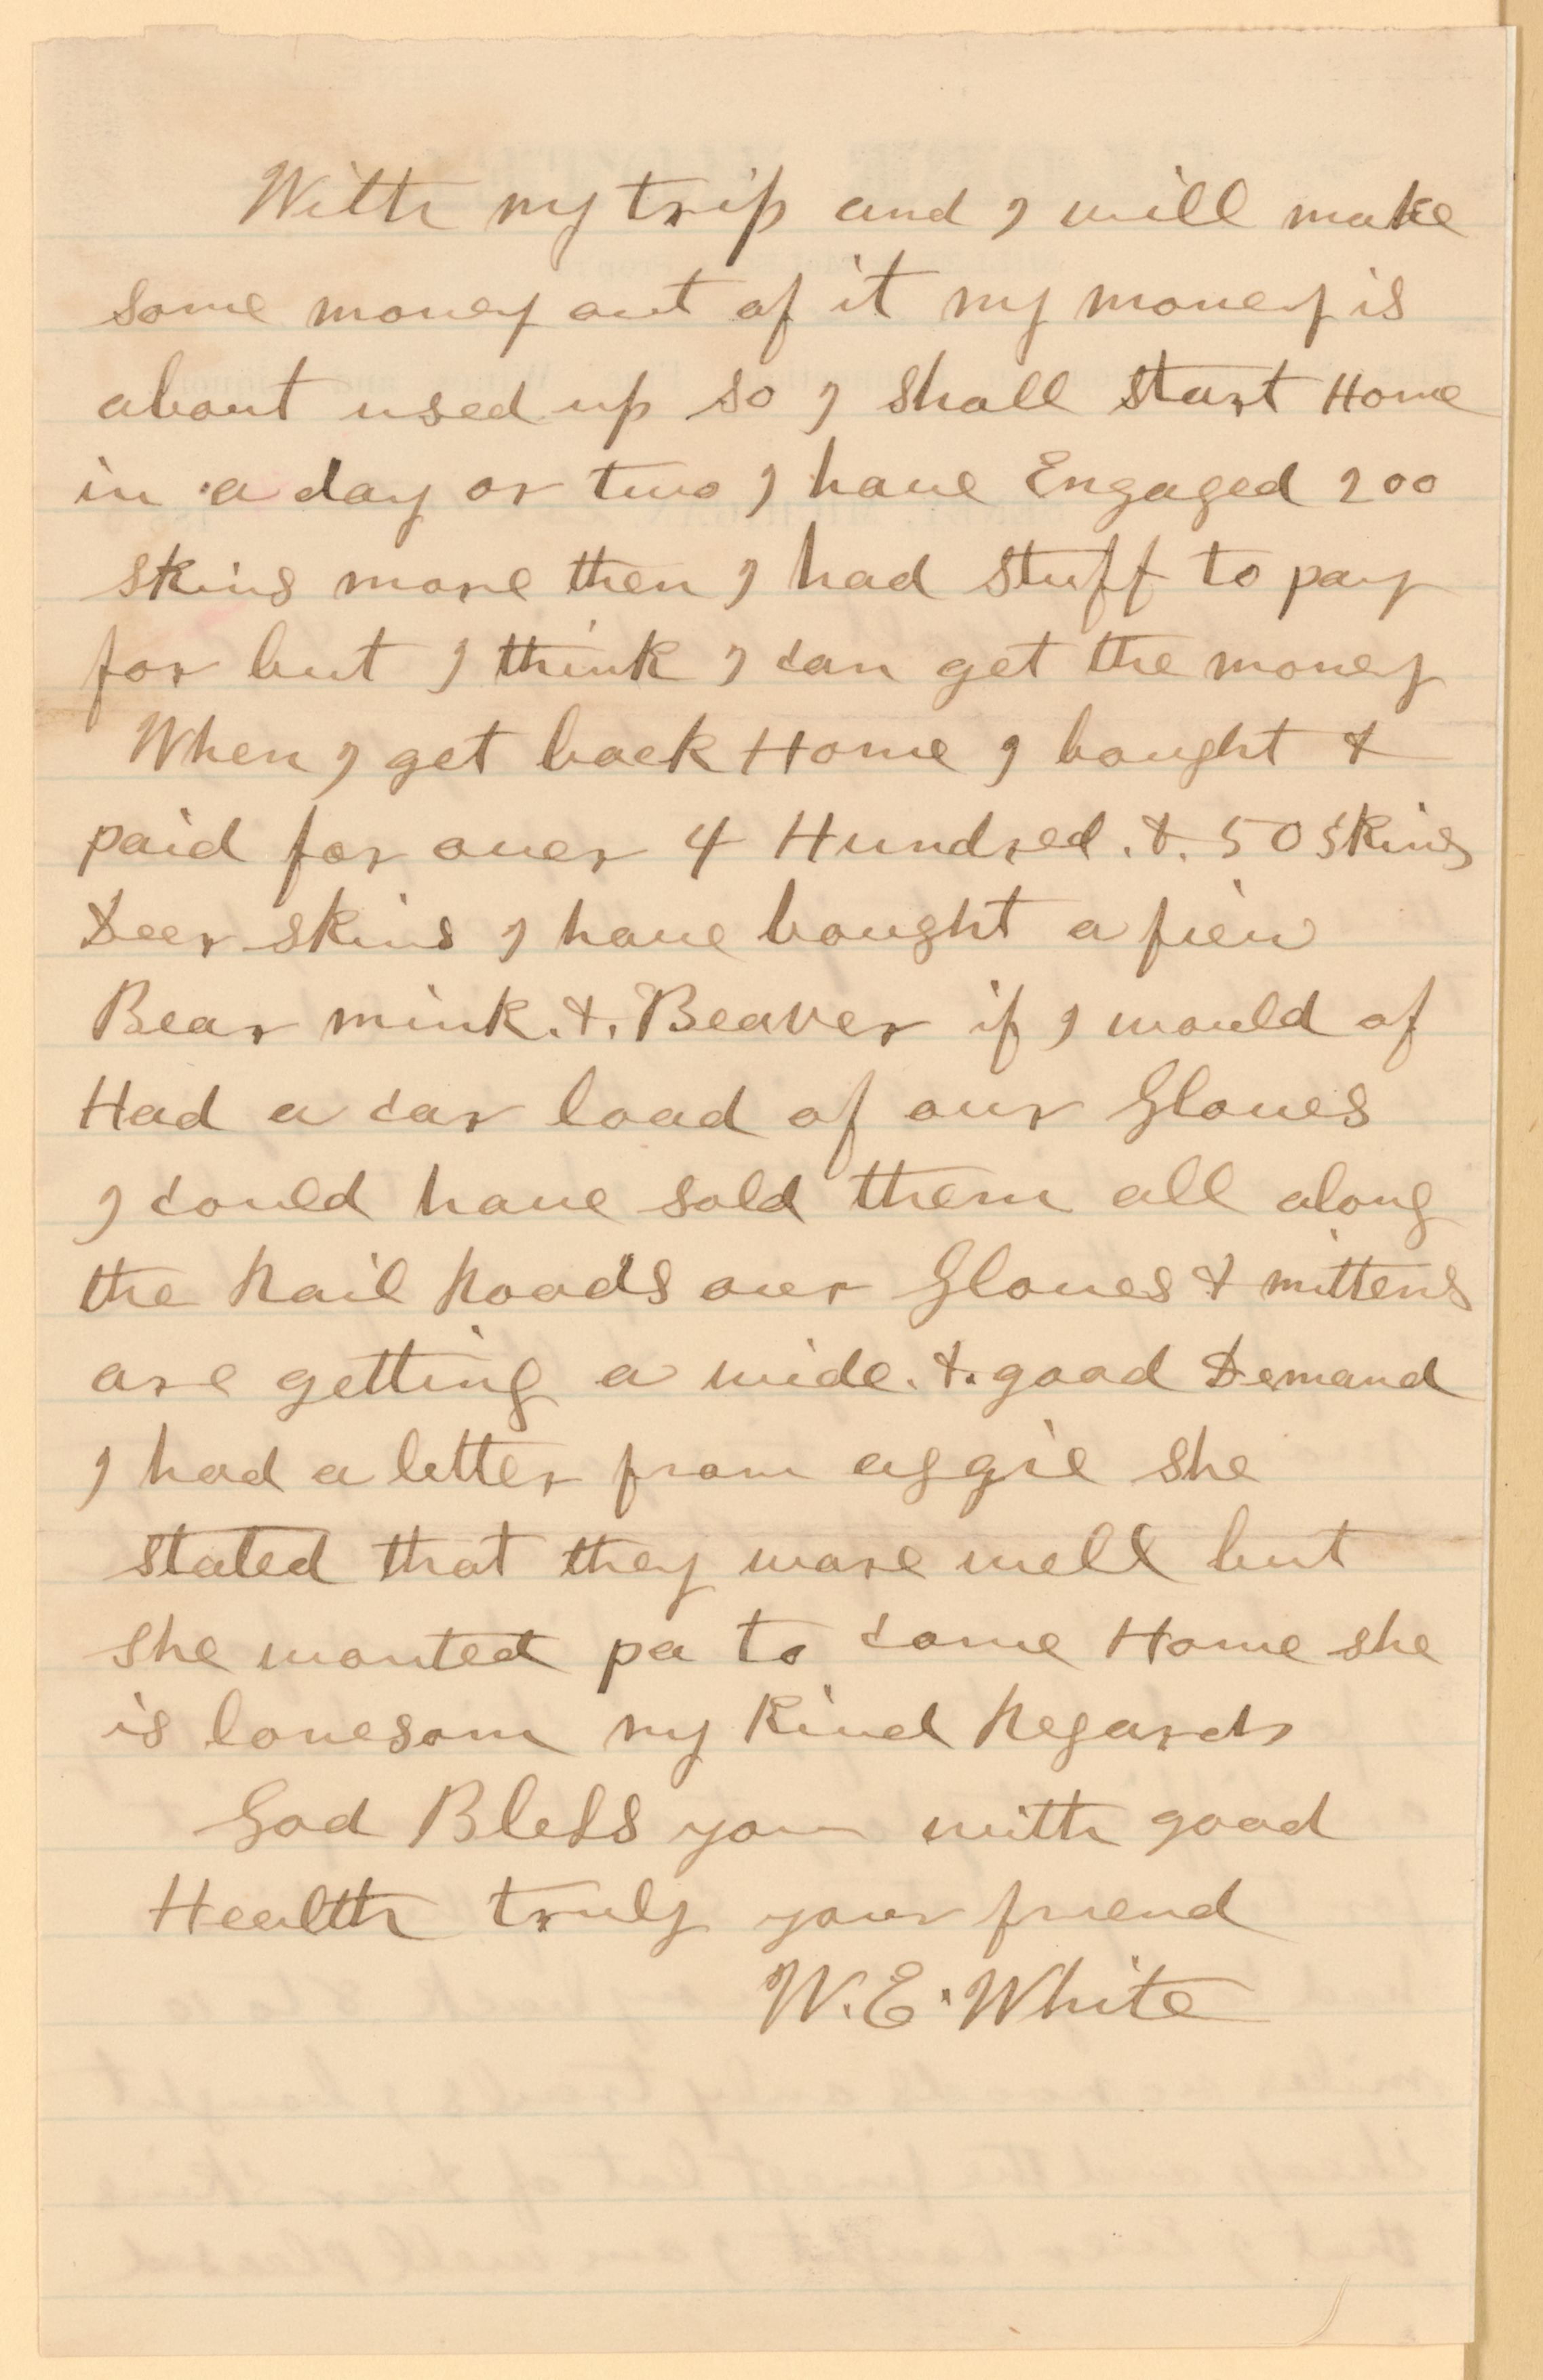 With my trip and I will make
some money out of it my money is
about used up so I shall start Home
in a day or two I have Engaged 200
skins more then I had stuff to pay
for but I think I can get the money
When I get back Home I bought &
paid for over 4 Hundred . &. 50 skins
Deer skins I have bought a fiew
Bear mink. &. Beaver if I would of
Had a car load of our Gloves
I could have sold them all along
the Rail Roads our Gloves & mittens
are getting a wide. &. good Demand
I had a letter from aggie she
stated that they ware well but
she wanted pa to come Home she
is lonesom my Kind Regards
God Bless you with good
Health truly your friend
W. E. White